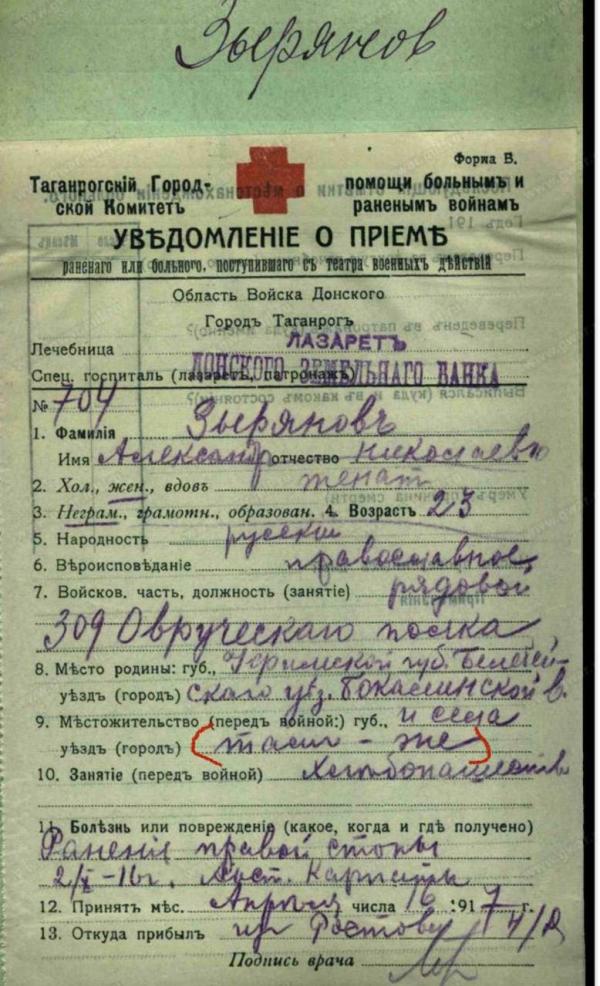 Зырянов
Форма В.
Таганрогскій Город-
ской Комитетъ
помощи больнымъ и
раненымъ воинамъ
УВѢДОМЛЕНІЕ О ПРІЕМѢ
раненаго или больного, поступившаго съ театра военныхъ дѣйствій
Область Войска Донского
Городъ Таганрогъ
ЛАЗАРЕТЪ
Лечебница
Спец. госпиталь (лазаретъ, патронажъ)
ДОНСКОГО ЗЕМЕЛЬНАГО БАНКА
№ 704
1. Фамилія Зыряновъ
Имя Александр отчество Николаевъ
2. Хол., жен., вдовъ женат
3. Неграм., грамотн., образован. 4. Возрастъ 23
5. Народность русский
6. Вѣроисповѣданіе православное
7. Войсков. часть, должность (занятіе) рядовой
309 Овруческаго полка
8. Мѣсто родины: губ., Уфимской губ. Белебей-
уѣздъ (городъ) скаго уѣз. в.
9. Мѣстожительство (передъ войной:) губ., и села
уѣздъ (городъ) (там - же)
10. Занятіе (передъ войной) Хлѣбопашество
11. Болѣзнь или поврежденіе (какое, когда и гдѣ получено)
Раненіе правой стопы
2/X-16г. Карпаты
12. Принятъ мѣс. Апрѣля числа 16 1917 г.
13. Откуда прибылъ из Ростова н/Д
Подпись врача